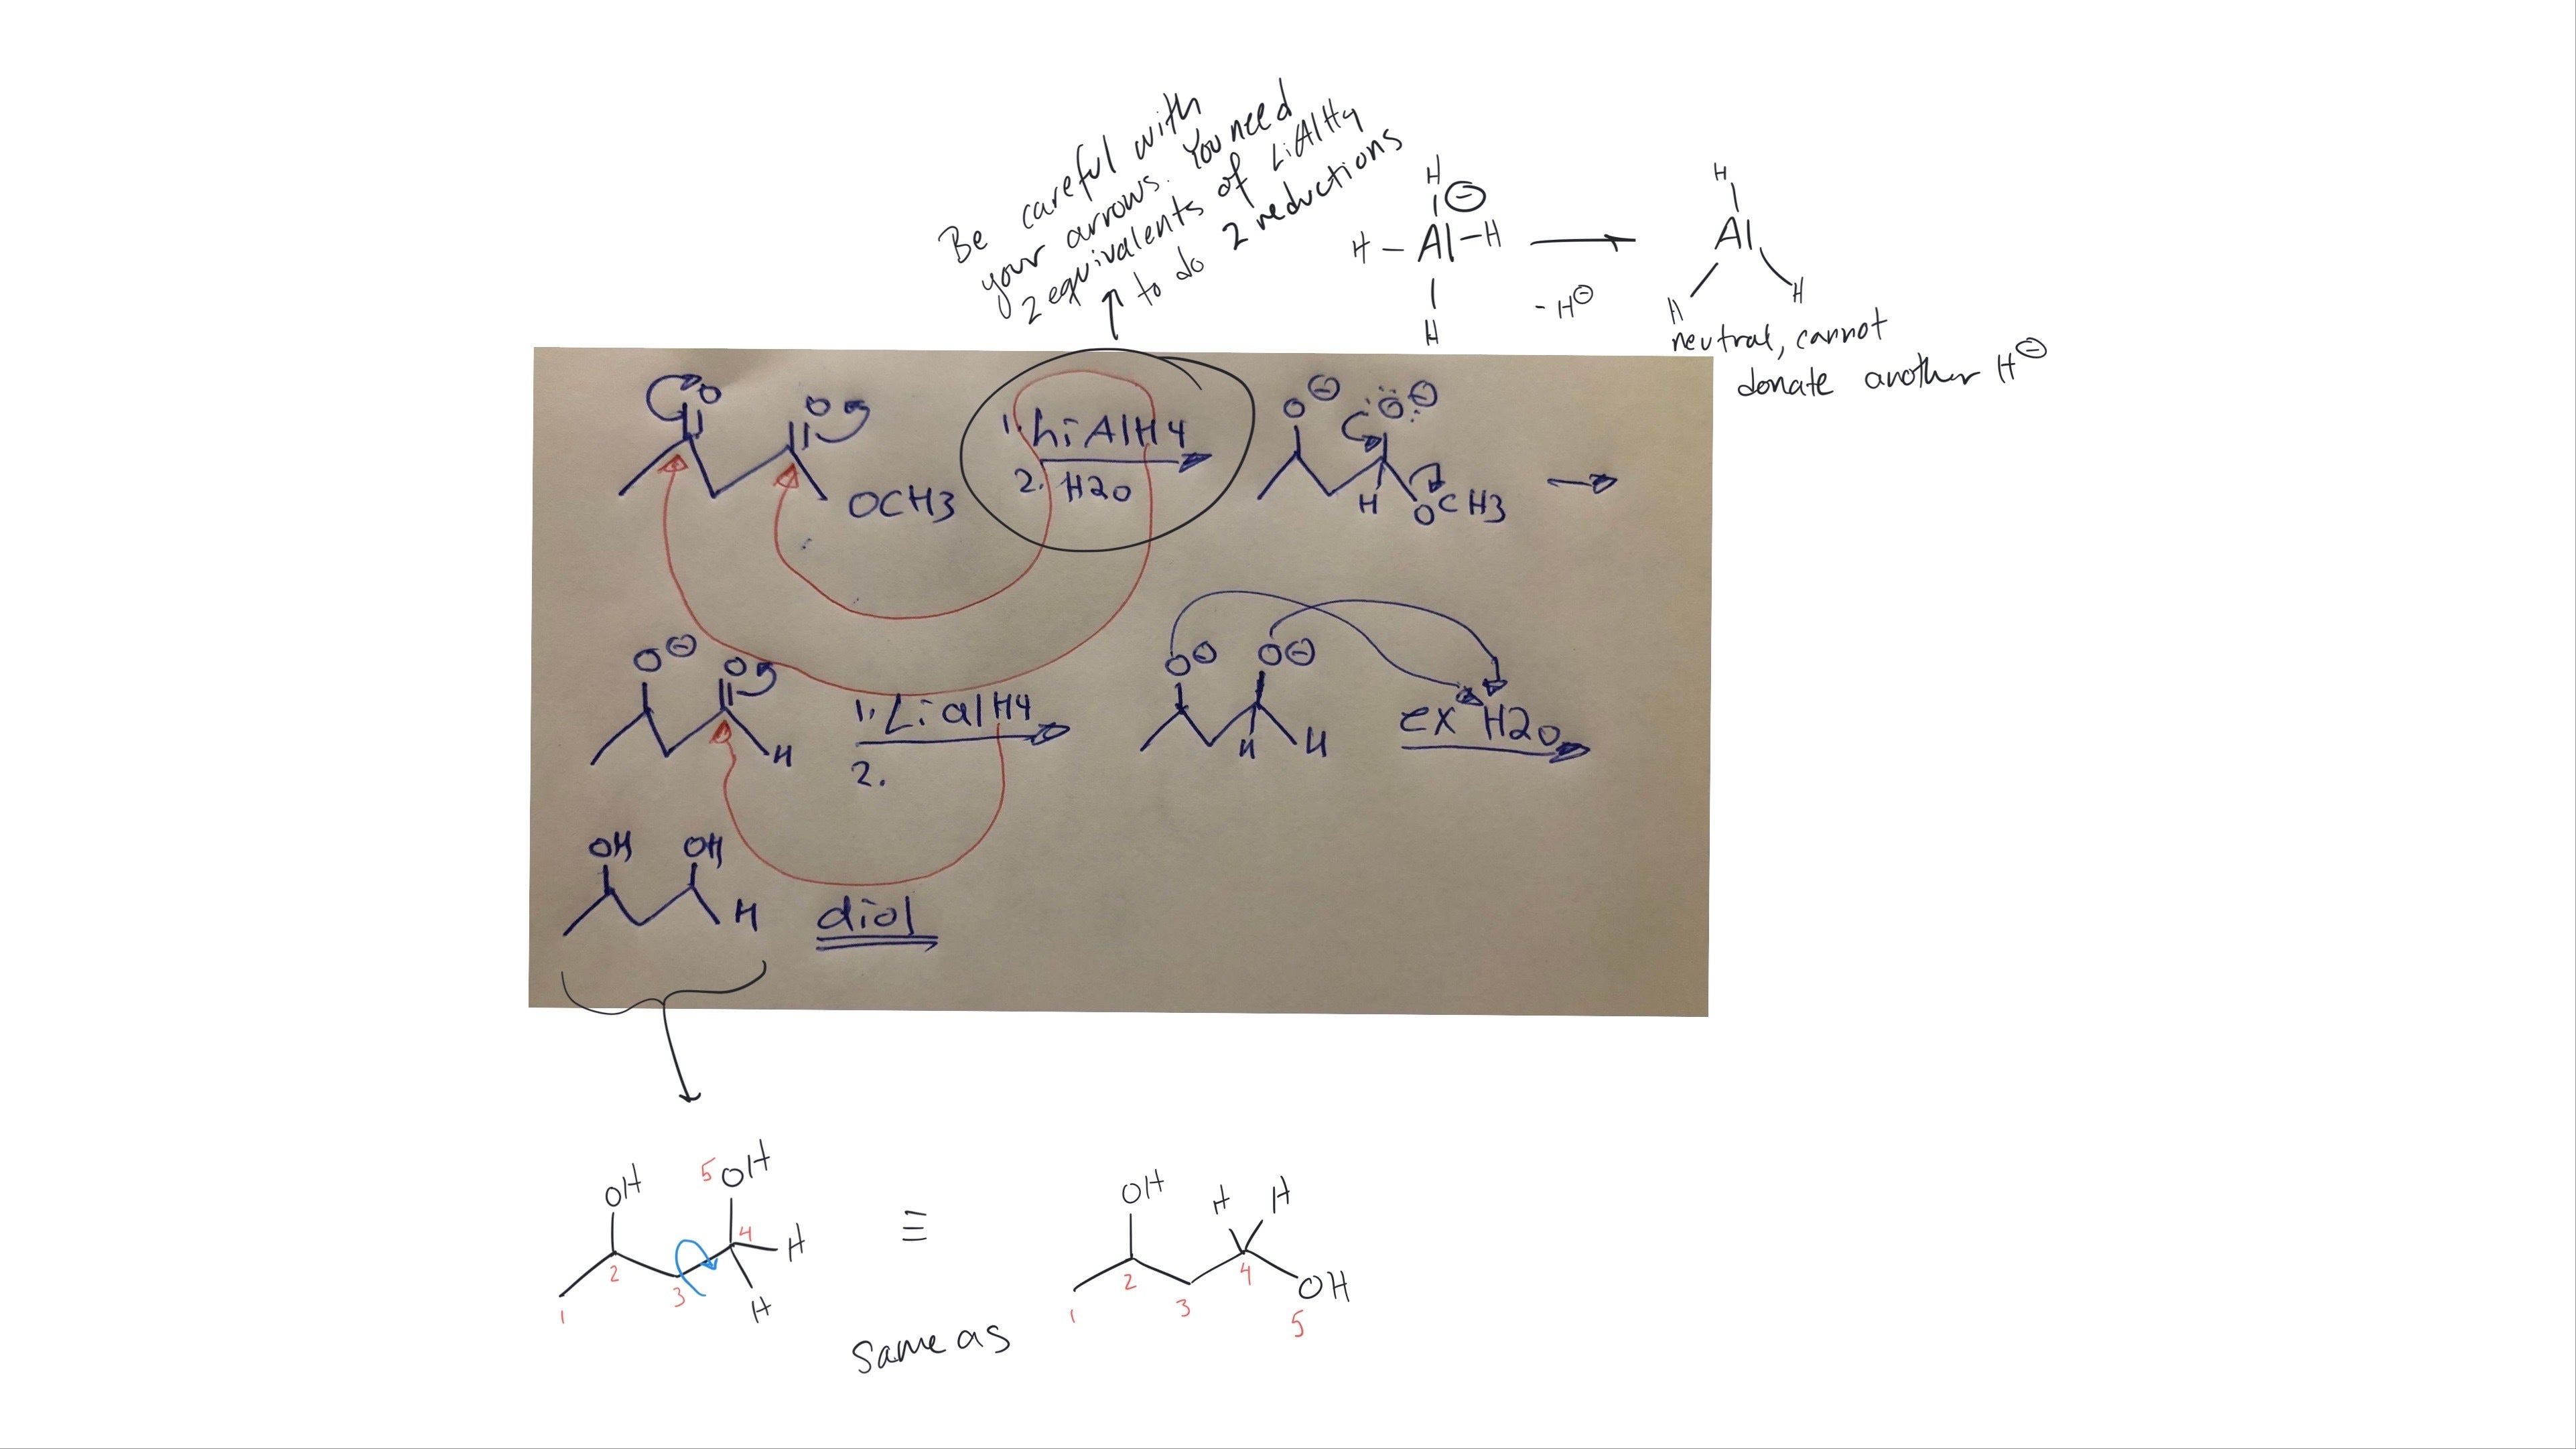 Be careful with
your arrows. You need
2 equivalents of LiAlH4
to do 2 reductions
H
⊖
H – Al – H
H
- H⊖
H
Al
H
H
neutral, cannot
donate another H⊖
O
O
OCH3
1. LiAlH4
2. H2O
O⊖
:Ö:⊖
H
OCH3
O⊖
O
H
1. LialH4
2.
O⊖
O⊖
H
H
ex H2O
OH
OH
H
diol
OH
5 OH
4
H
H
1
2
3
≡
same as
OH
H
H
OH
1
2
3
4
5